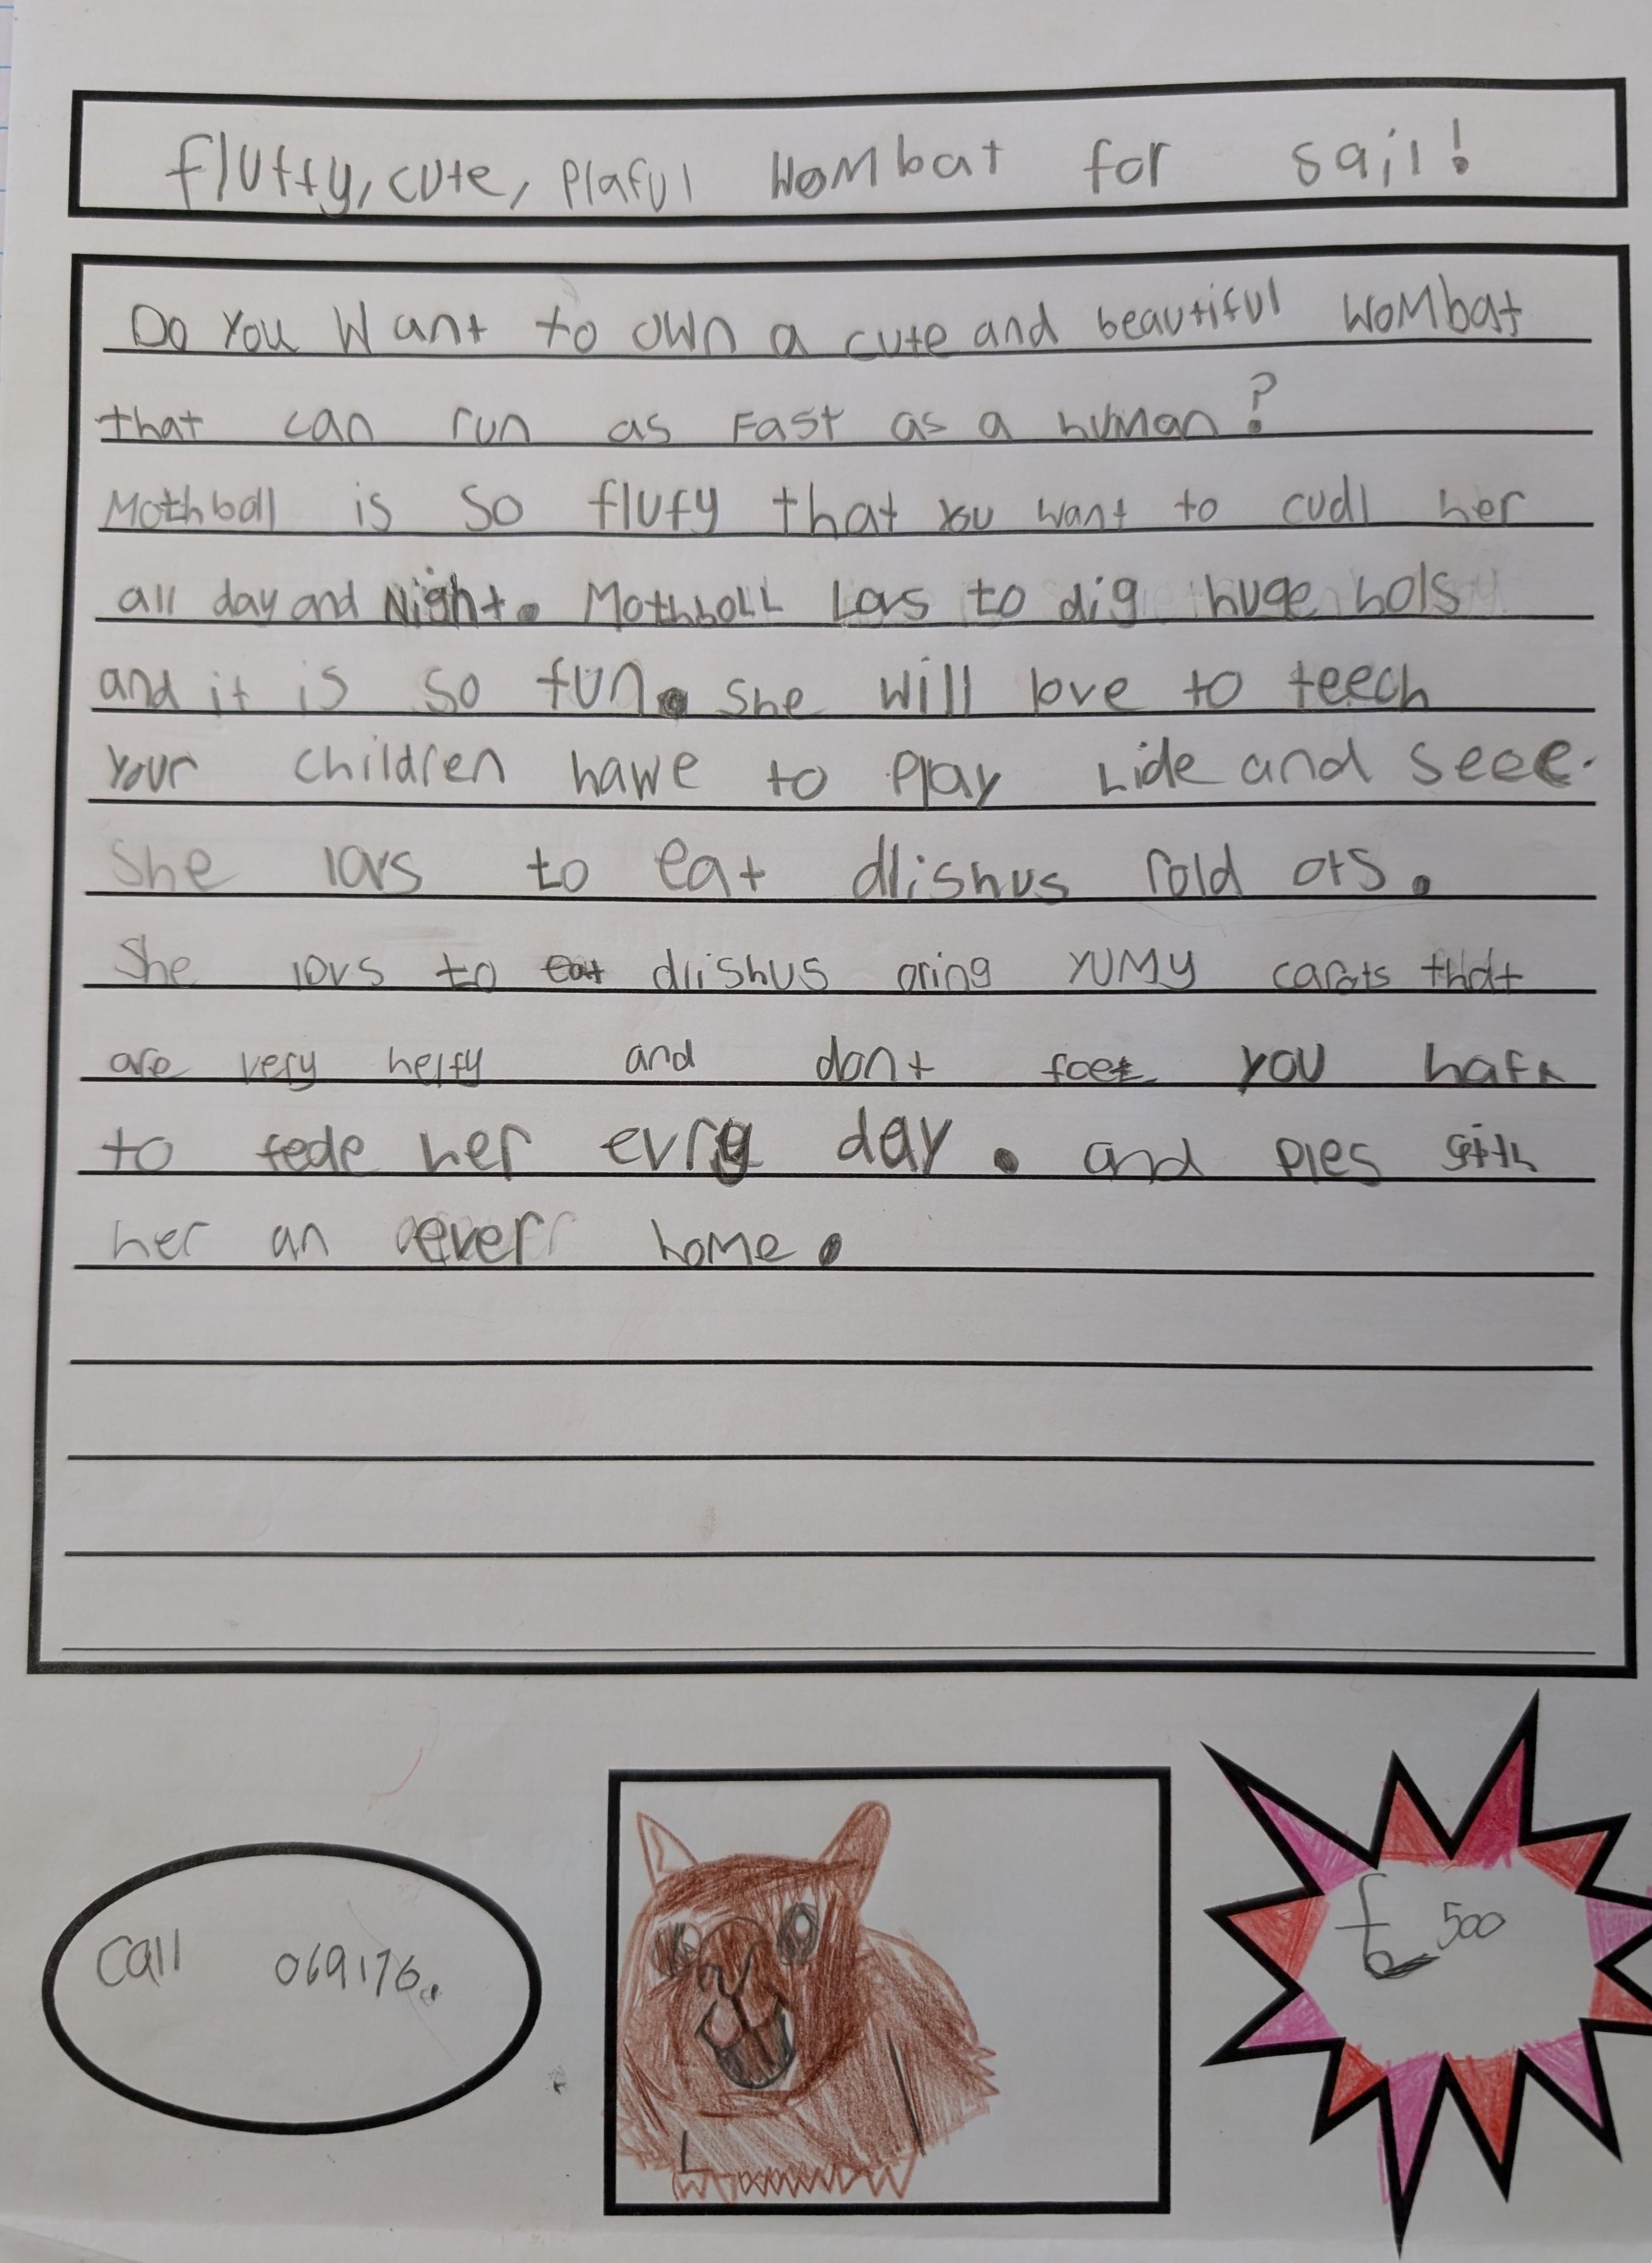 fluffy, cute, plaful wombat for sail!
Do you want to own a cute and beautiful wombat
that can run as Fast as a human?
Mothball is so flufy that you want to cudl her
all day and Night. Mothball Lovs to dig huge hols
and it is so fun. She will love to teech
your children hawe to play hide and seec.
She lovs to eat dlishus rold ots.
She lovs to eat dlishus oring yumy carots that
are very helfy and dont foget you haft
to fede her evry day. and ples gith
her an ever home.
Call 069176.
£500